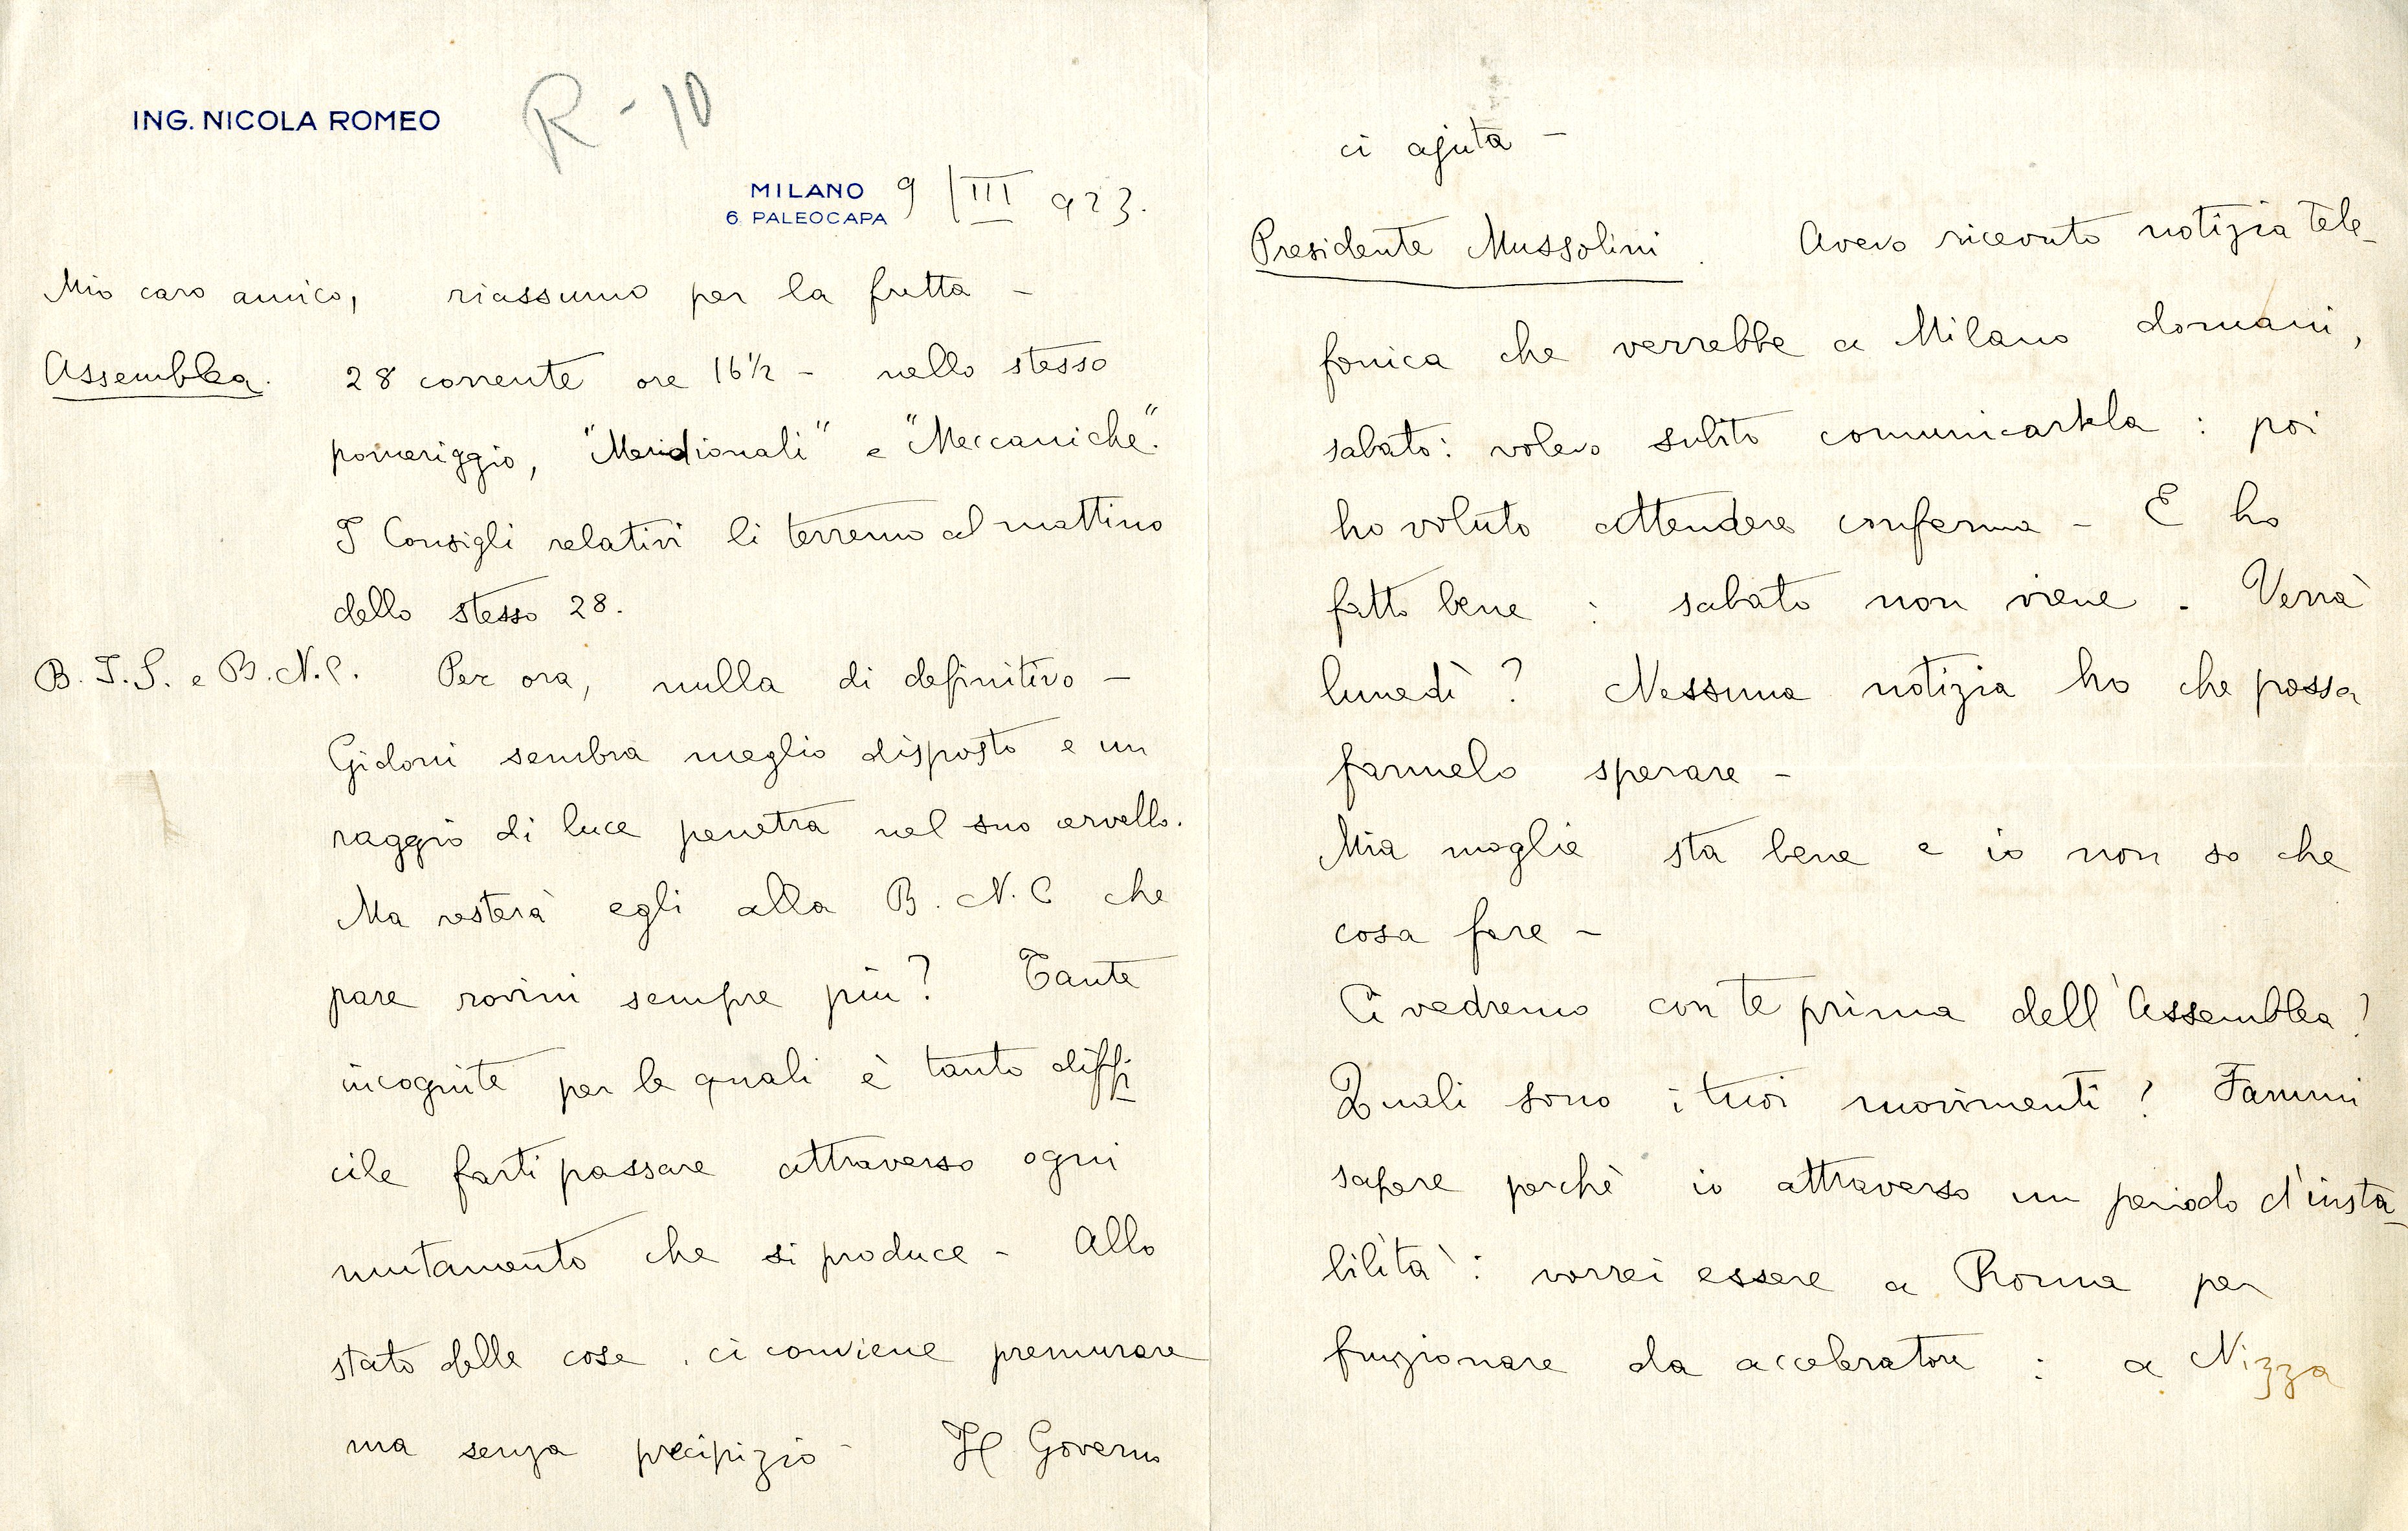 ING. NICOLA ROMEO
R - 10
MILANO 9 / III 923.
6. PALEOCAPA
Mio caro amico, riassumo per la fretta -
Assemblea. 28 corrente ore 16 1/2 - nello stesso
pomeriggio, "Meridionali" e "Meccaniche".
I Consigli relativi li terremo al mattino
dello stesso 28.
B.I.S. e B.N.C. Per ora, nulla di definitivo -
Gidoni sembra meglio disposto e un
raggio di luce penetra nel suo cervello.
Ma resterà egli alla B.N.C che
pare rovini sempre più? Tante
incognite per le quali è tanto diffi
cile farti passare attraverso ogni
mutamento che si produce - Allo
stato delle cose, ci conviene premurare
ma senza precipizio - Il Governo
ci ajuta -
Presidente Mussolini. Avevo ricevuto notizia tele-
fonica che verrebbe a Milano domani,
sabato: volevo subito comunicartela : poi
ho voluto attendere conferma - E ho
fatto bene : sabato non viene. Verrà
lunedì? Nessuna notizia ho che possa
farmelo sperare -
Mia moglie sta bene e io non so che
cosa fare -
Ci vedremo con te prima dell'Assemblea?
Quali sono i tuoi movimenti? Fammi
sapere perchè io attraverso un periodo d'insta-
bilità : vorrei essere a Roma per
funzionare da acceleratore : a Nizza